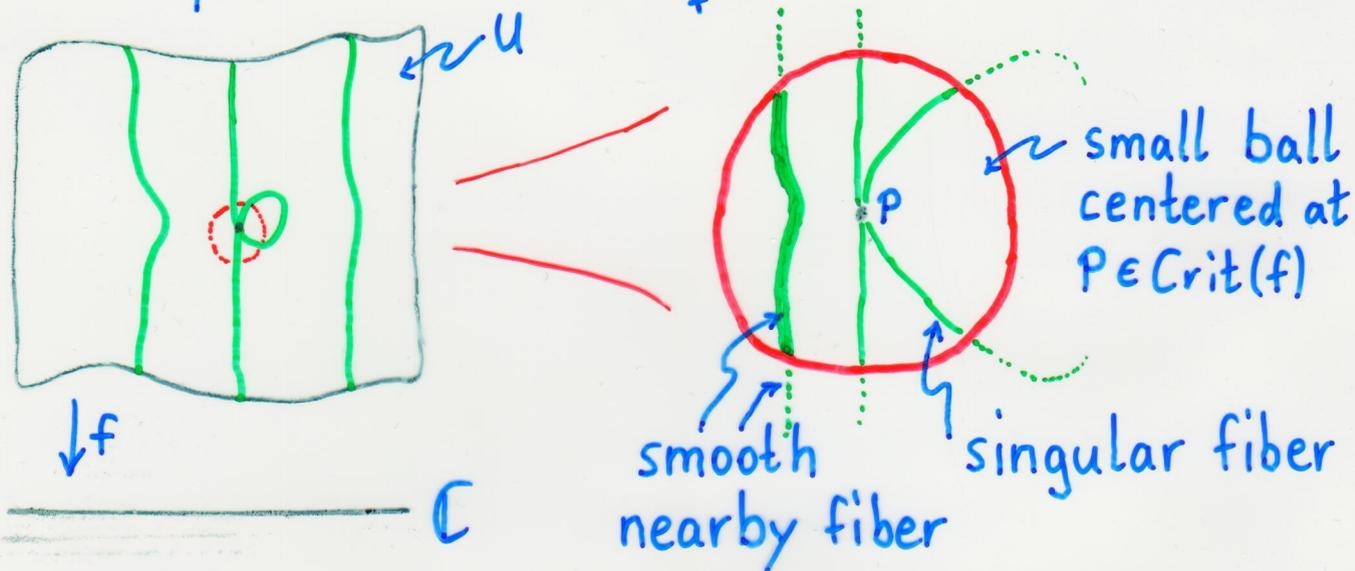 U
f
ℂ
P
small ball
centered at
P ∈ Crit(f)
smooth
nearby fiber
singular fiber